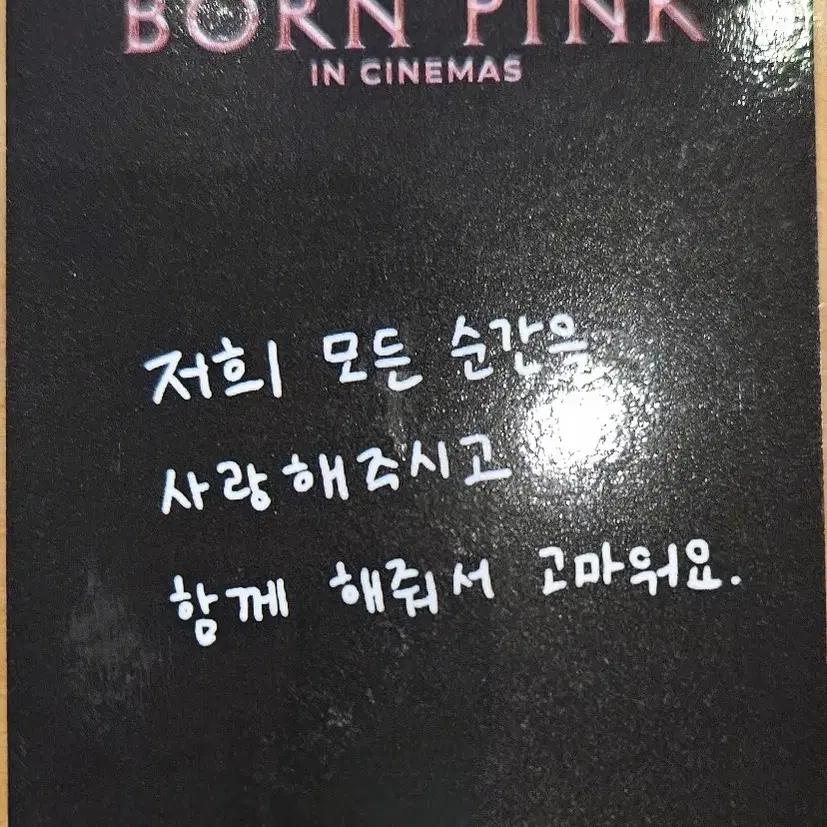 BORN PINK
IN CINEMAS
저희 모든 순간을
사랑해주시고
함께 해줘서 고마워요.